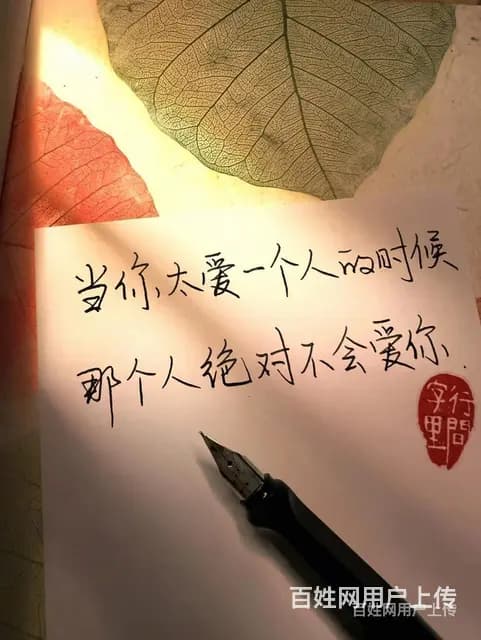 当你太爱一个人的时候
那个人绝对不会爱你.
字里行間
百姓网用户上传
百姓网用户上传